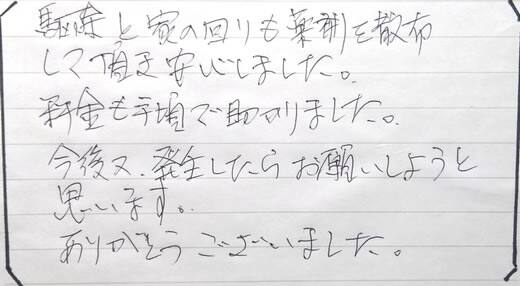 駆除と家の回りも薬剤を散布
して頂き安心しました。
料金も手頃で助かりました。
今後又、発生したらお願いしようと
思います。
ありがとうございました。